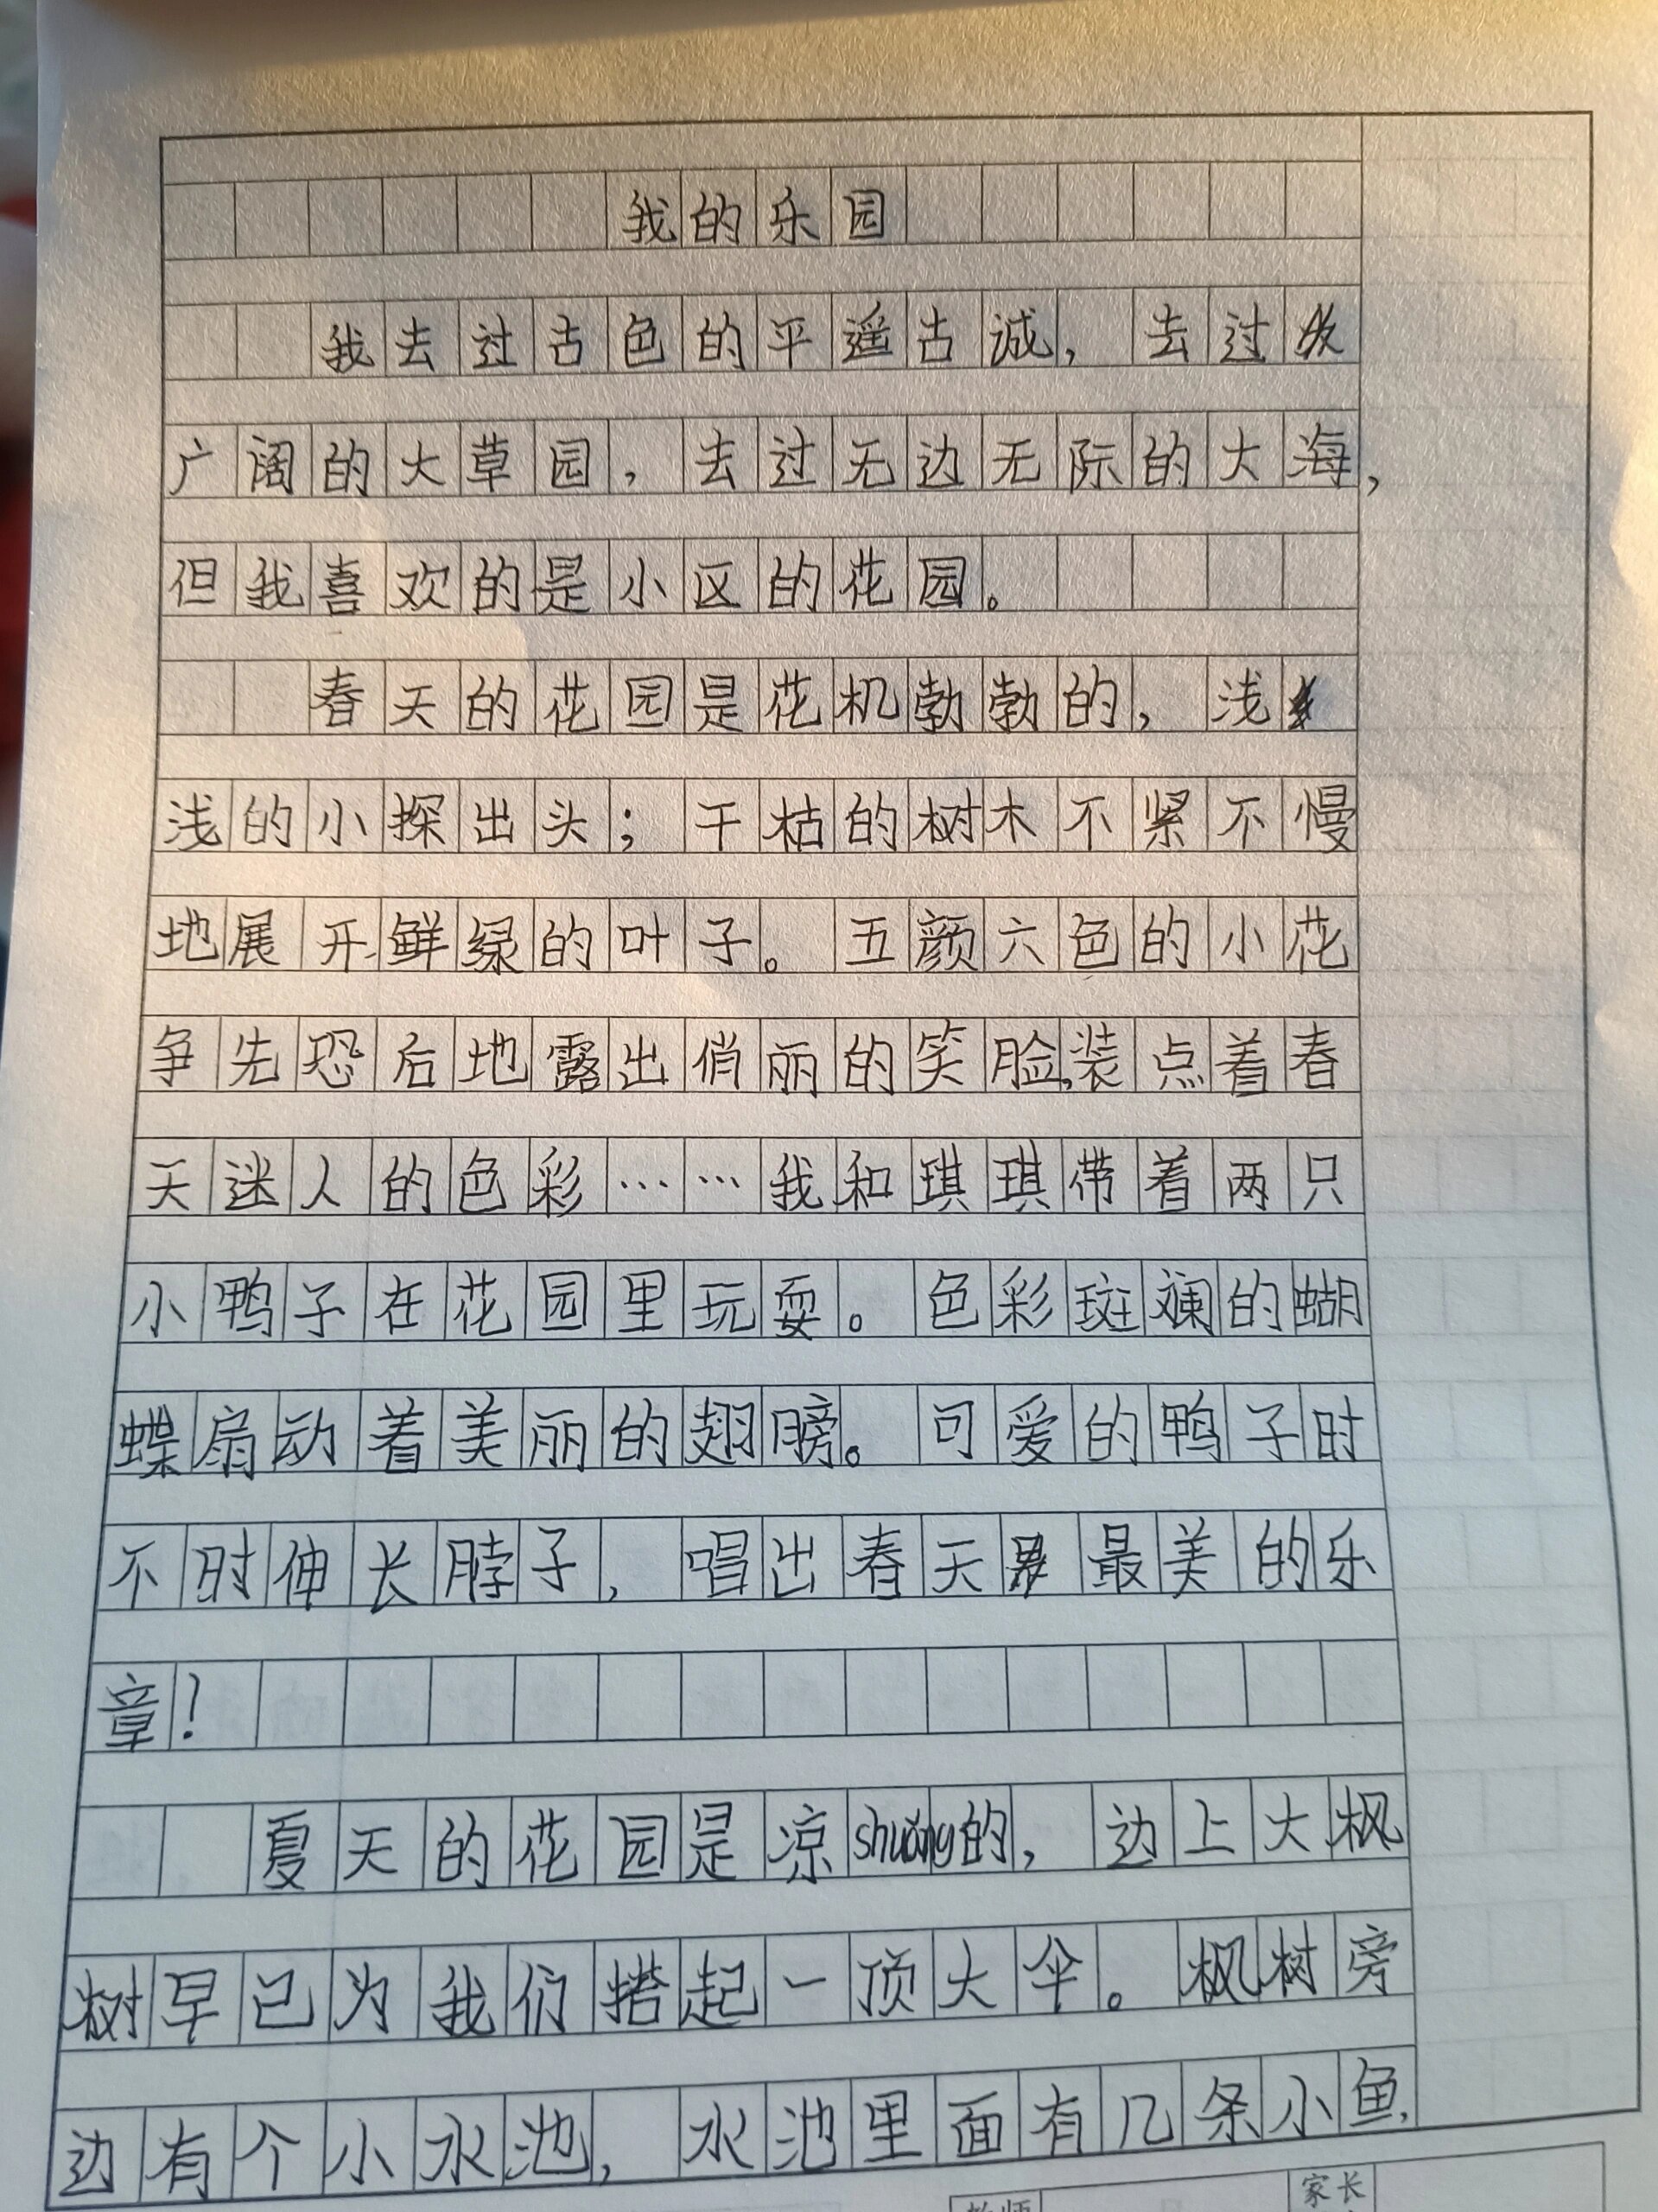 我的乐园
我去过古色的平遥古诚，去过
广阔的大草园，去过无边无际的大海，
但我喜欢的是小区的花园。
春天的花园是花机勃勃的，浅
浅的小探出头；干枯的树木不紧不慢
地展开鲜绿的叶子。五颜六色的小花
争先恐后地露出俏丽的笑脸,装点着春
天迷人的色彩……我和琪琪带着两只
小鸭子在花园里玩耍。色彩斑斓的蝴
蝶扇动着美丽的翅膀。可爱的鸭子时
不时伸长脖子，唱出春天最美的乐
章！
夏天的花园是凉shuǎng的，边上大枫
树早已为我们搭起一顶大伞。枫树旁
边有个小水池，水池里面有几条小鱼，
家长